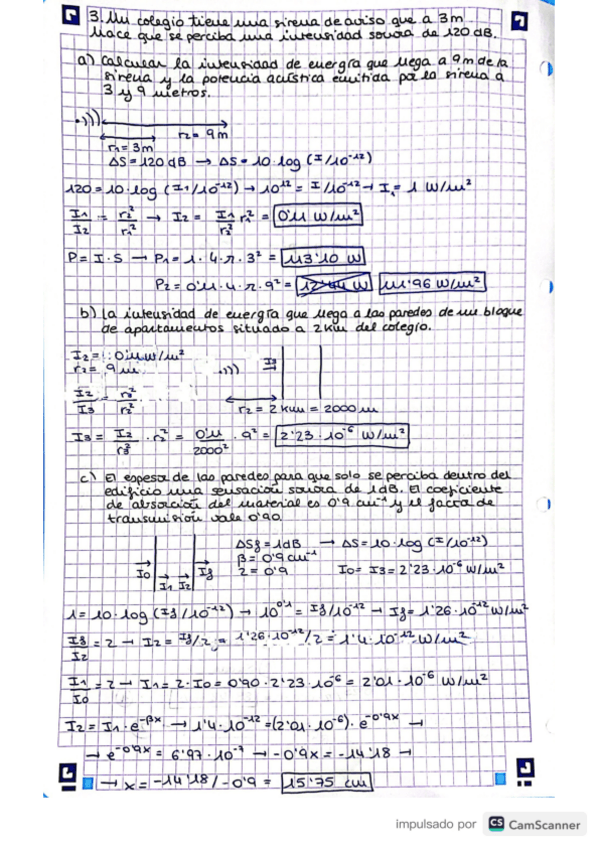 3. Mi colegio tiene una sirena de aviso que a 3m
hace que se perciba una intensidad sonora de 120 dB.
a) Calcular la intensidad de energía que llega a 9m de la
sirena y la potencia acústica emitida por la sirena a
3 y 9 metros.
r2 = 9m
r1 = 3m
ΔS = 120 dB → ΔS = 10·log (I/10^-12)
120 = 10·log (I1/10^-12) → 10^12 = I/10^-12 → I1 = 1 W/m²
I1/I2 = r2²/r1² → I2 = I1/r2² r1² = 0'11 W/m²
P = I·S → P1 = 1·4·π·3² = 113'10 W
P2 = 0'11·4·π·9² = 12'44 W 111'96 W/m²
b) La intensidad de energía que llega a las paredes de un bloque
de apartamentos situado a 2km del colegio.
I2 = 0'11 W/m²
r2 = 9 m
I3
I2/I3 = r3²/r2²
r2 = 2 km = 2000 m
I3 = I2/r3² · r2² = 0'11/2000² · 9² = 2'23·10^-6 W/m²
c) El espesor de las paredes para que solo se perciba dentro del
edificio una sensación sonora de 1dB. El coeficiente
de absorción del material es 0'9 cm^-1 y el factor de
transmisión vale 0'90.
ΔSf = 1dB → ΔS = 10·log (I/10^-12)
β = 0'9 cm^-1
τ = 0'9 I0 = I3 = 2'23·10^-6 W/m²
I0 I1 I2 If
1 = 10·log (If/10^-12) → 10^0'1 = If/10^-12 → If = 1'26·10^-12 W/m²
If/I2 = τ → I2 = If/τ = 1'26·10^-12/τ = 1'4·10^-12 W/m²
I1/I0 = τ → I1 = τ·I0 = 0'90·2'23·10^-6 = 2'01·10^-6 W/m²
I2 = I1·e^-βx → 1'4·10^-12 = (2'01·10^-6)·e^-0'9x →
→ e^-0'9x = 6'97·10^-7 → -0'9x = -14'18 →
→ x = -14'18/-0'9 = 15'75 cm
impulsado por CS CamScanner